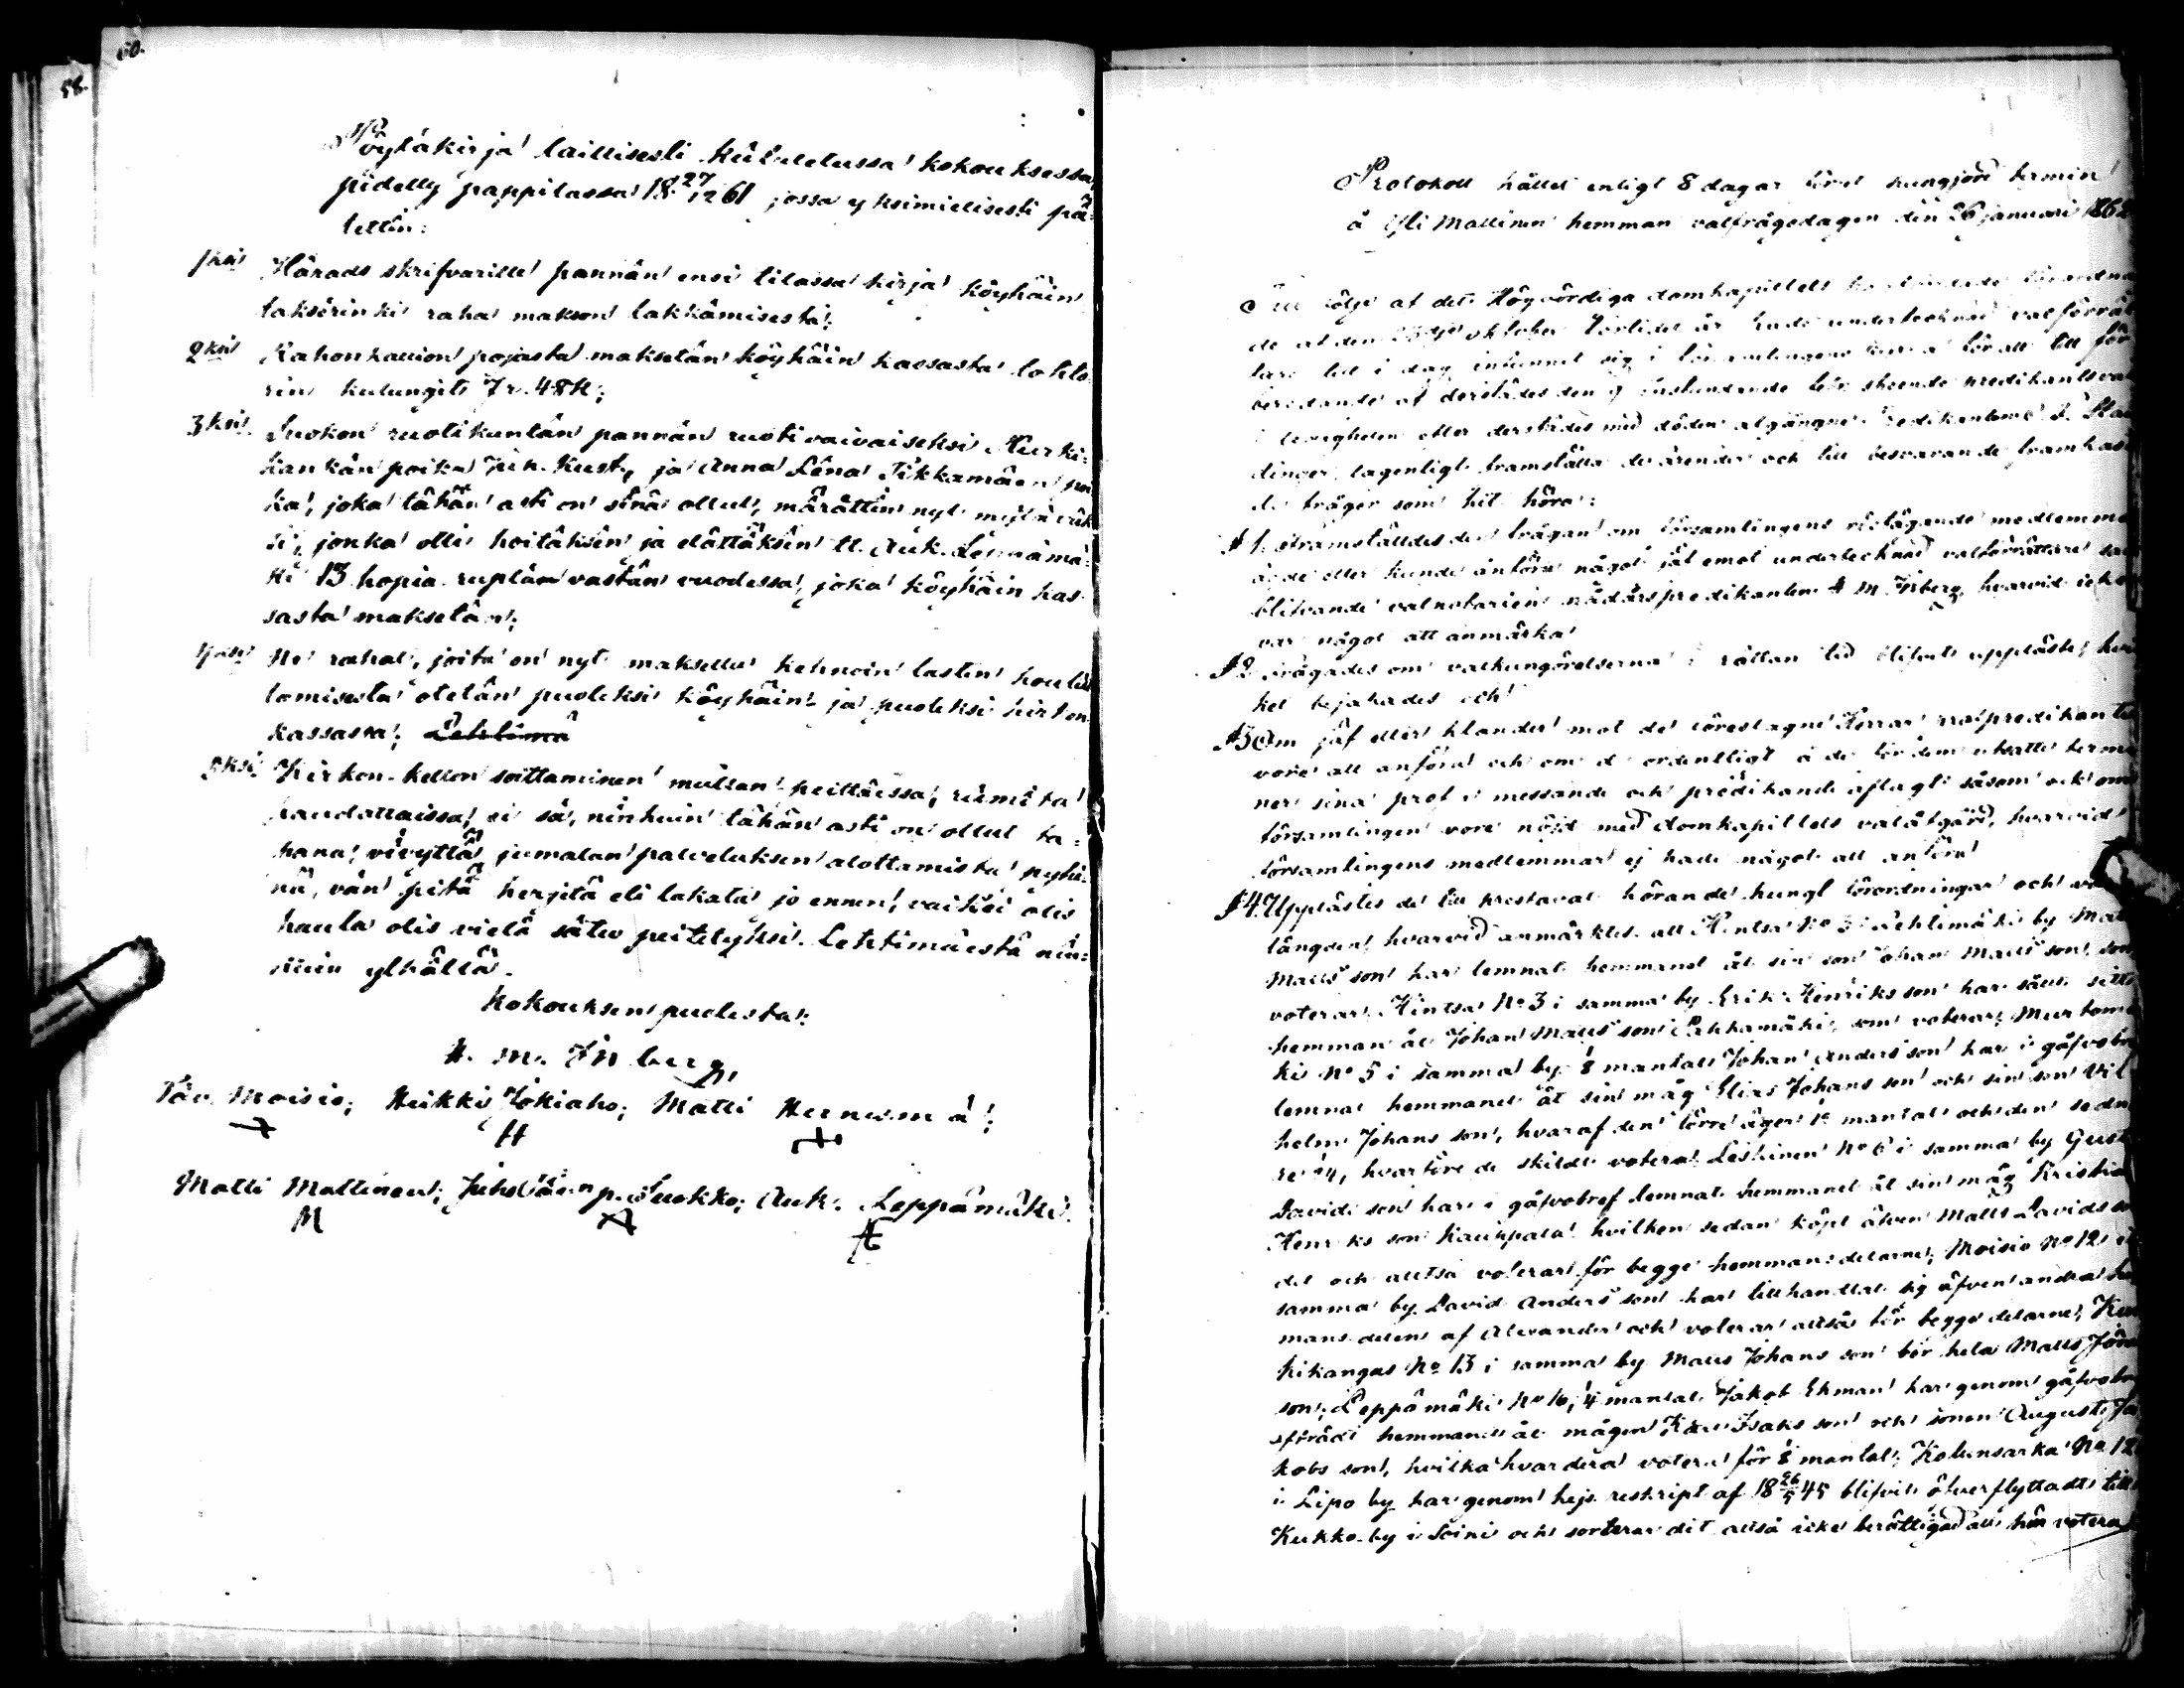 60.
58.
Pöytäkirja laillisesti kuulutetussa kokouksessa,
pidetty pappilassa 18 27/12 61 jossa yksimielisesti pä-
tettin:
1ksi Härads skrifvarille pannân ensi tilassa kirja köyhäin
taksêrinki raha makson lakkâmisesta;
2ksi Kahonkallion pojasta maksetân köyhäin kassasta tohto-
rin kulungit 7 r. 48 k;
3ksi Luokon ruotikuntân pannân ruotivaivaiseksi Kurki-
kankân poika Juh. Kust, ja Anna Lêna Tikkamäen poi
ka, joka tähän asti on sînä ollut, märâttin nyt
si, jonka otti hoitâksen ja elättâksen tt. Auk. Leppämä-
ki 13 hopia ruplân vastân vuodessa, joka köyhäin kas-
sasta maksetân;
4ksi Ne rahat, joita on nyt maksettu kehnoin lasten
tamisesta otetân puoleksi köyhäin- ja puoleksi kirkon
kassasta; Lehtimä
5ksi Kirkon-kellon soittaminen mullan heittäissa, rûmîta
haudattaissa, ei sâ, nînkuin tähän asti on ollut ta-
hana, vîvyttâ jumalan palveluksen alottamista pyhi-
nä, vân pitâ herjitä eli lakata jo ennen, vaikkei olis
hauta olis vielä sâtu peitetyksi. Lehtimäestä nin-
kuin ylhâllâ.
Kokouksen puolesta:
K. M. Inberg,
Pâv. Moisio; Heikki Jokiaho; Matti Hernesmâ;
H
Matti Mattinen; Juho p. Luokko; Auk. Leppämäki.
M A A
Protokoll hållet enligt 8 dagar förut kungjord termin
å Yli Mallinen hemman valfrågodagen den 26 januari 1862
Till följe af det Högvördiga domkapitlets förordnan
de af den 23dje oktober förlidet år hade undertecknad valförrät
tare tid i dag infunnit sig i församlingens för att till för
beredande af derstädes den 9 instundande skeende predikantsval
i ledigheten efter derstädes med döden afgångne Predikanten J.
dinger, lagenligt framställa de ärender och till besvarande framkasta
de frågor som hit höra:
§ 1. Framställdes den frågan om församlingens röstägande medlemmar
ägde eller kunde anföra något jäf emot undertecknad valförrättare samt
blifvande valnotarien nådårspredikanten K M Inberg, hvarvid icke
var något att anmärka
§ 2. Frågades om valkungörelserna i rättan tid blifvit uppläste, hvil
ket bejakades och
§ 3 Om jäf eller klander mot de föreslagne Herrar profpredikanter
vore att anföra och om de ordentligt å de för dem utsatte termi
ner sina prof i messande och predikande aflagt såsom ock om
församlingen vore nöjd med domkapitlets valåtgärd, hvarvid
församlingens medlemmar ej hade något att anföra
§ 4. Upplästes de till prestaval hörande kungl förordningar och
längden, hvarvid anmärktes att Hintsa No 3 i Lehtimäki by Matts
Matts son har lemnat hemmanet åt sin son Johan Matts son, som
voterar. Hintsa No 3 i samma by Erik Henriks son har sålt sitt
hemman åt Johan Matts son i Pakkamäki, som voterar; Murtomä
ki No 5 i samma by 1/8 mantalt Johan Anders son har i gåfvobref
lemnat hemmanet åt sin måg Elias Johans son och sin son Vil
helm Johans son, hvaraf den förre äger 1/16 mantal och den sedna
re 1/4, hvarföre de skildt votera. Leskinen No 6 i samma by Gust
Davids son har i gåfvobref lemnat hemmanet åt sin måg Kristian
Henriks son Kauppala hvilken sedan köpt äfven Matts Davids sons
del och alltså voterar för begge hemmansdelarne; Moisio No 12 i
samma by David Anders son har tillhandlat sig äfven andra hem
mans delen af Alexander och voterar alltså för begge delarne; Kur
kikangas No 13 i samma by Matts Johans son för hela Matts
son; Leppämäki No 16, 1/4 mantal Jakob Ekman har genom gåfvobref
afträdt hemmanet åt mågen Karl Isaks son och sonen August Ja
kobs son, hvilka hvardera votera för 1/8 mantal; Kolunsarka No 12
i Lipo by har genom kejs. reskript af 18 26/5 45 blifvit öfverflyttadt till
Kukko by i Soini och sorterar dit alltså icke berättigad att här votera